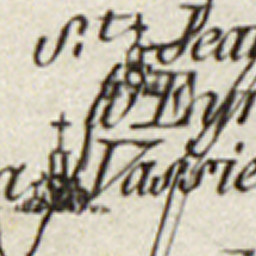 S.t Jea
d'Eyr
a Vassie